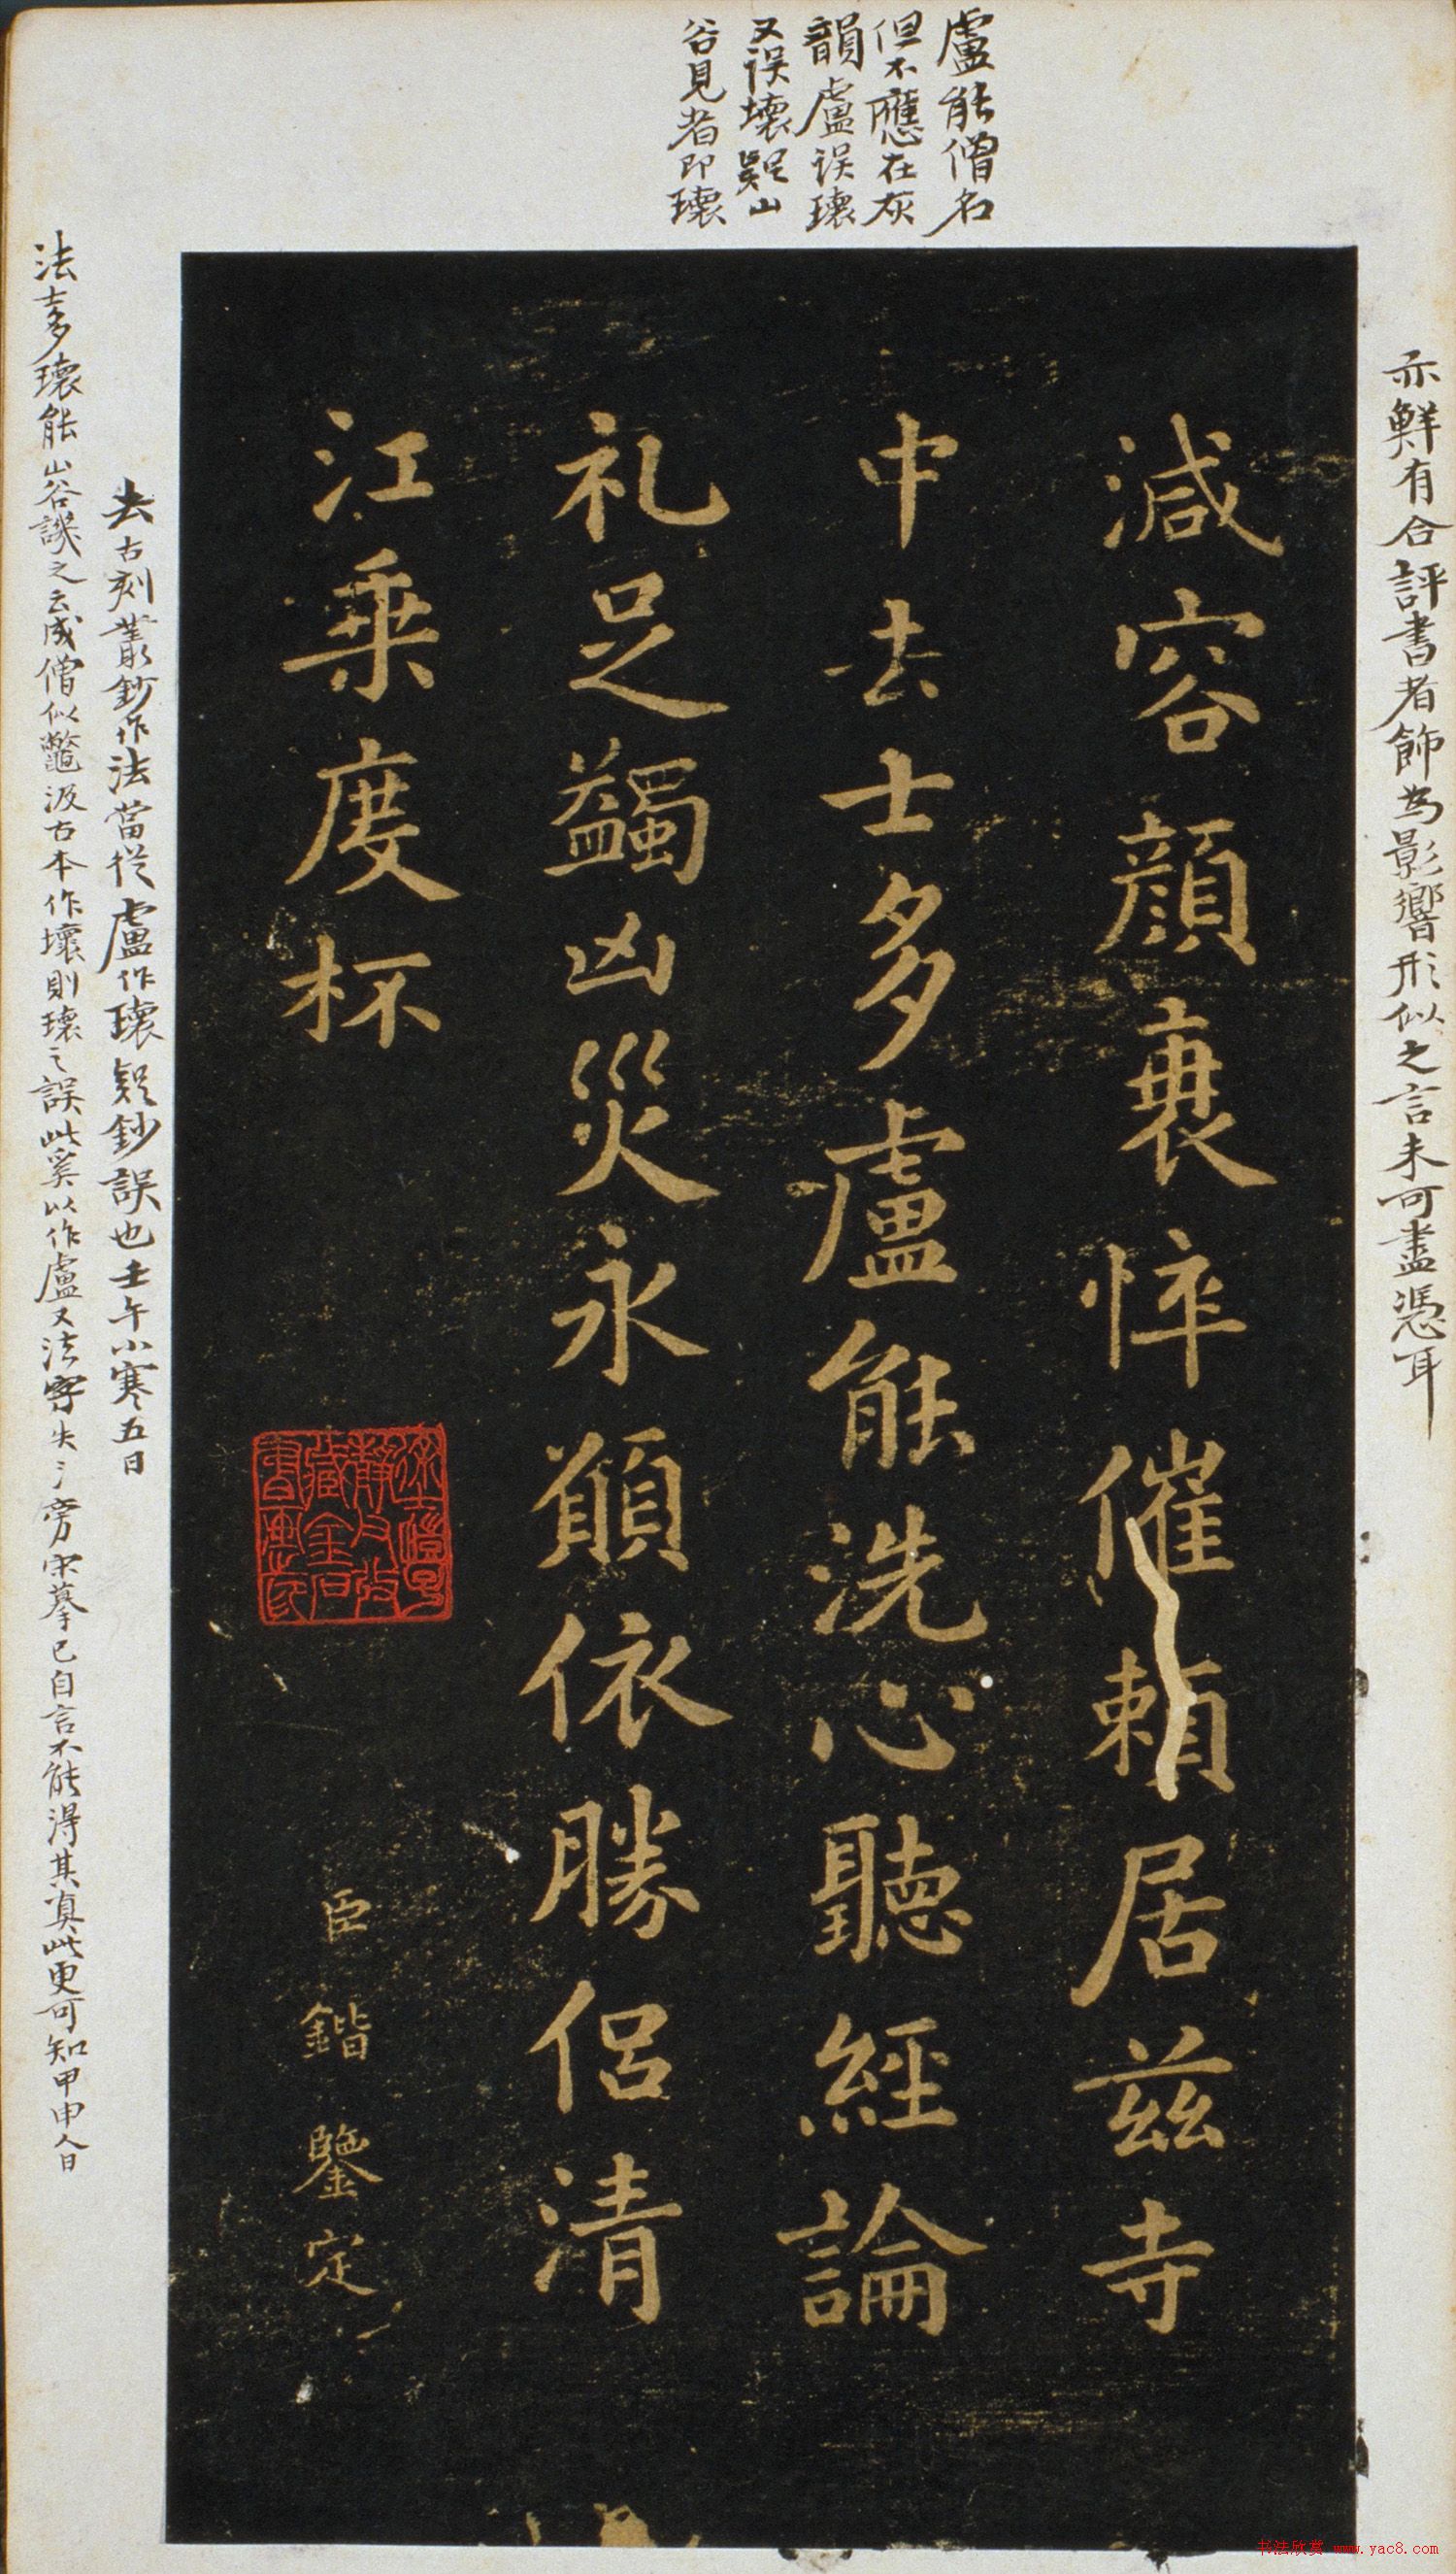 盧能僧名
但不應在灰
韻盧误瓌
又误壞疑山
谷見者即瓌
亦鮮有合評書者飾為影響形似之言未可盡憑耳
減容顔衰悴催頼居兹寺
中去士多盧能洗心聽經論
礼足蠲凶災永願依勝侣清
江乗度杯
臣鍇鑒定
去古刻叢鈔作法當從盧作瓌疑鈔誤也壬午小寒五日
法士多瓌能山谷譏之云成僧似鼈汲古本作壞則瓌之誤此奚以作盧又法字失氵旁宋摹已自言不能得其真此更可知甲申人日
书法欣赏 www.yac8.com